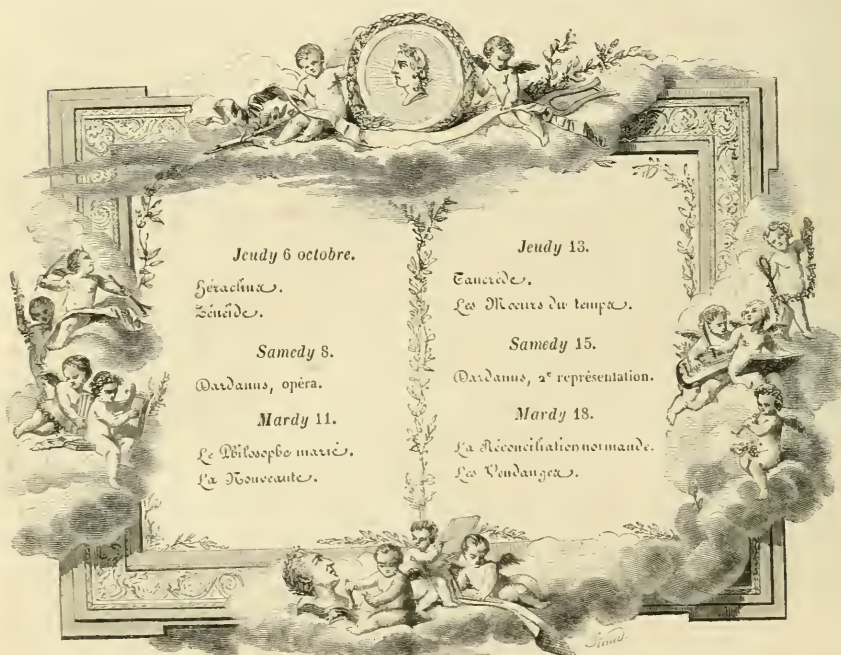 Jeudy 6 octobre.
Héraclius.
Zénéïde.
Samedy 8.
Dardanus, opéra.
Mardy 11.
Le Philosophe marié.
La Nouveauté.
Jeudy 13.
Tancrède.
Les Mœurs du temps.
Samedy 15.
Dardanus, 2e représentation.
Mardy 18.
La Réconciliation normande.
Les Vendanges.